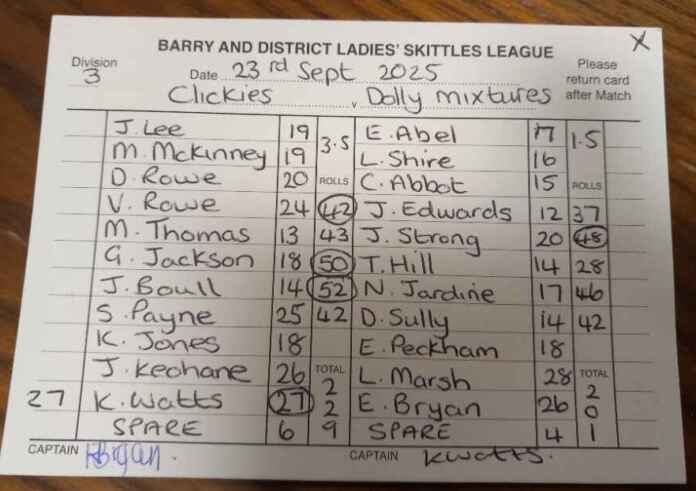 X
BARRY AND DISTRICT LADIES' SKITTLES LEAGUE
Division 3
Date 23rd Sept 2025
Please return card after Match
Clickies v Dolly mixtures
J. Lee 19 3.5 E. Abel 17 1.5
M. McKinney 19 L. Shire 16
D. Rowe 20 ROLLS C. Abbot 15 ROLLS
V. Rowe 24 42 J. Edwards 12 37
M. Thomas 13 43 J. Strong 20 48
G. Jackson 18 50 T. Hill 14 28
J. Boull 14 52 N. Jardine 17 46
S. Payne 25 42 D. Sully 14 42
K. Jones 18 E. Peckham 18
J. Keohane 26 TOTAL 2 L. Marsh 28 TOTAL 2
27 K. Watts 27 2 E. Bryan 26 0
SPARE 6 9 SPARE 4 1
CAPTAIN CAPTAIN KWatts.